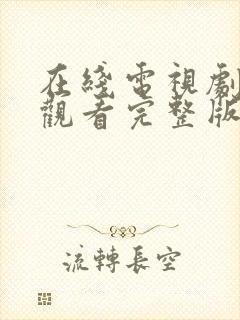 在綫電視劇
觀看完整版
流轉長空